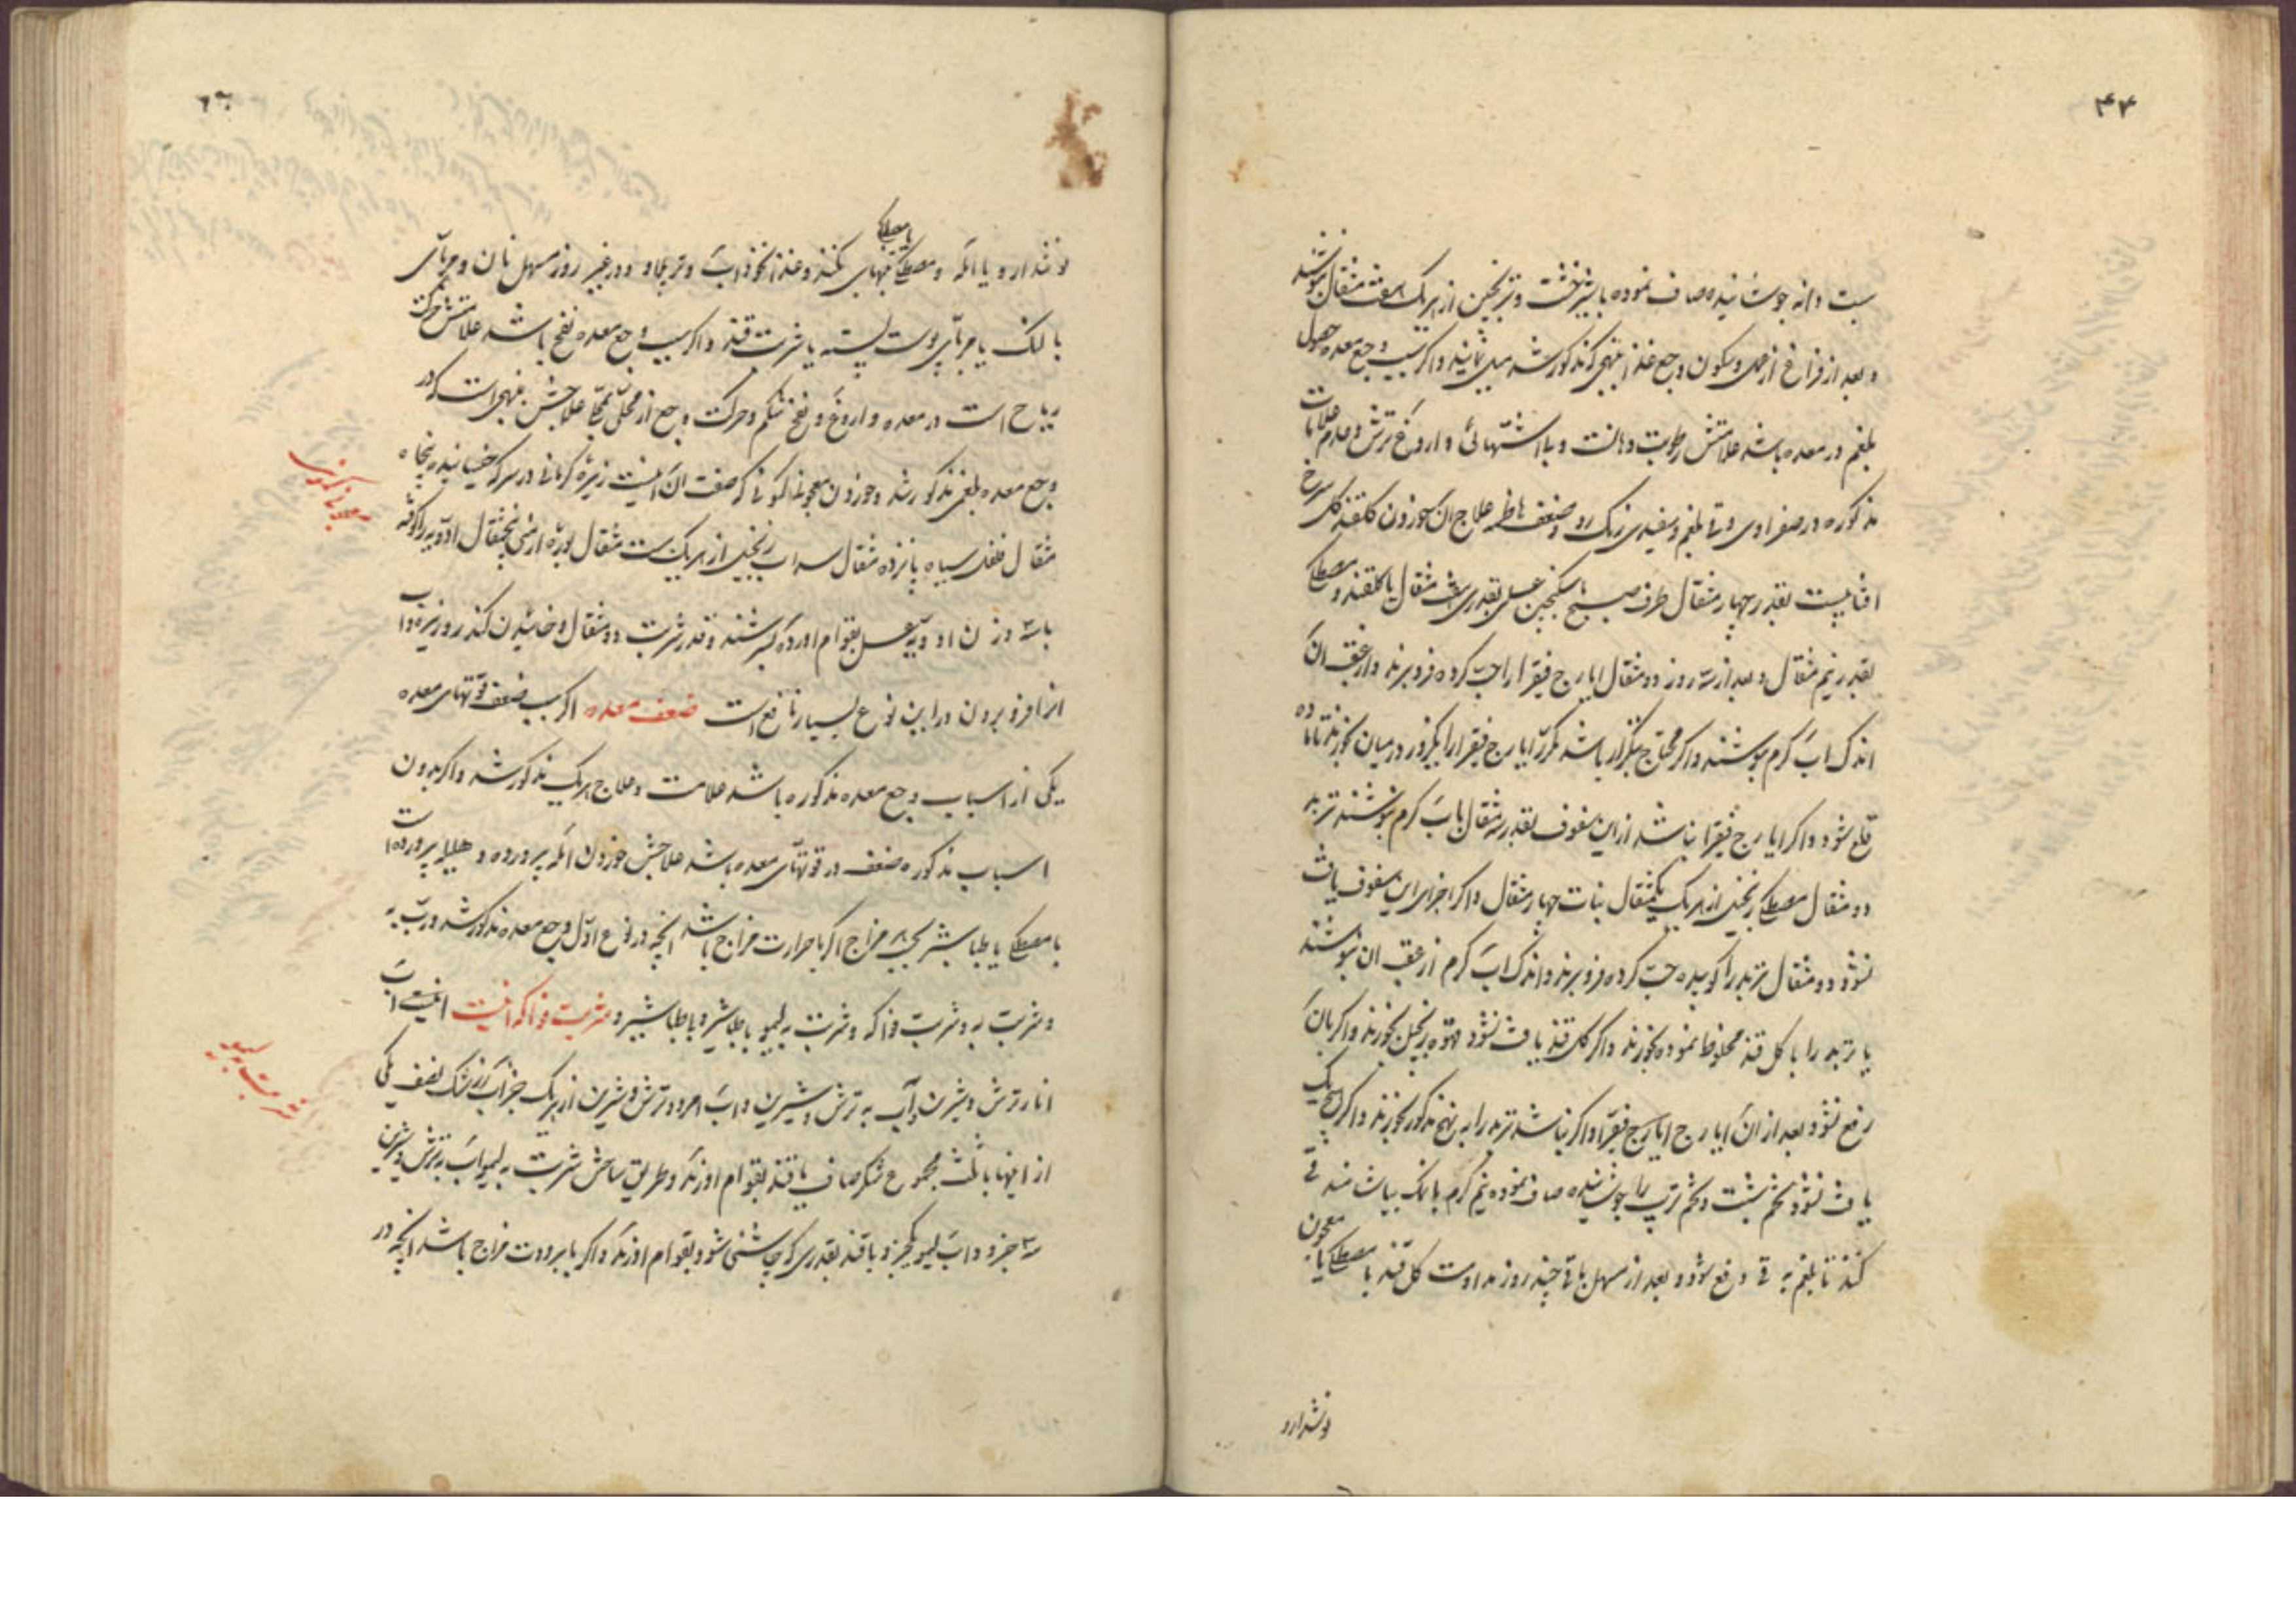 ۴۴
بست دانه جوشانیده صاف نموده با شیرخشت و ترنجبین از هریک هفت مثقال بنوشند
و بعد از فراغ از عمل و سکون وجع غذا بنهجی که مذکور شد میل نمایند و اگر سبب وجع معده حصول
بلغم در معده باشد علامتش رطوبت دهانست و بی اشتهائی و اروغ ترش و عدم علامات
مذکوره در صفراوی و قی بلغم و سفیدی رنک رو و ضعف هاضمه علاج آن خوردن کلقند کل سرخ
افتابیست بقدر چهار مثقال طرف صبح با سکنجبین عسلی بقدر شش مثقال یا کلقند و مصطکی
بقدر نیم مثقال و بعد از سه روز دو مثقال ایارج فیقرا را حب کرده فرو برند و از عقب آن
اندک آب کرم بنوشند و اگر محتاج بتکرار باشد مکرر ایارج فیقرا را یکروز در میان بخورند تا ماده
قلع شود و اگر ایارج فیقرا نباشد از این سفوف بقدر سه مثقال باب کرم بنوشند تربد
دو مثقال مصطکی زنجبیل از هریک یکمثقال نبات چهار مثقال و اگر اجزای این سفوف یافت
نشود دو مثقال تربد را کوبیده حب کرده فرو برند و اندک آب کرم از عقب ان بنوشند
یا تربد را با کل قند مخلوط نموده بخورند و اگر کل قند یافت نشود قهوه زنجبیل بخورند و اگر بآن
رفع نشود بعد از آن ایارج فیقرا و اگر نباشد تربد را به نهج مذکور بخورند و اگر هیچیک
یافت نشود تخم شبت و تخم ترب را جوشانیده صاف نموده نیم کرم با نمک بیاشامند قی
کنند تا بلغم به قی دفع شود و بعد از مسهل یا قی چند روز مداومت کل قند با مصطکی یا معجون
نوشدارو
نوشدارو یا امله و مصطکی بتنهایی کنند و غذا نخوداب و در غیر روز مسهل نان و مربای
با مصطکی
بالنک یا مربای پوست پسته یا شربت قند و اکر سبب وجع معده نفخ باشد علامتش حرکت
ریاح است در معده و اروغ و نفخ شکم و حرکت وجع از محلی بمحلی علاجش بنهجی است که در
وجع معده بلغمی مذکور شد و خوردن معجون کمونی که صفت آن اینست زیره کرمانی در سرکه خیسانیده پنجاه
معجون کمونی
مثقال فلفل سیاه پانزده مثقال سداب زنجبیل از هریک بیست مثقال بوره ارمنی پنجمثقال ادویه را کوفته
با سه وزن ادویه عسل بقوام اورده بسرشند و قدر شربت دو مثقال و خائیدن کندر و زیره و اب
انرا فرو بردن در این نوع بسیار نافع است ضعف معده اکر سبب ضعف قوتهای معده
یکی از اسباب وجع معده مذکوره باشد علامت و علاج هریک مذکور شد و اکر بدون
اسباب مذکوره ضعف در قوتهای معده باشد علاجش خوردن امله پرورده و هلیله پرورده است
با مصطکی یا طباشیر بحسب مزاج اکر با حرارت مزاج باشد انچه در نوع اول وجع معده مذکور شد و رب به
و شربت به و شربت فواکه و شربت به لیمو با طباشیر و شربت فواکه اینست اب
شربت به لیمو
انار ترش و شیرین و آب به ترش و شیرین و آب امرود ترش و شیرین از هریک جزو آب زرشک نصف یکی
از اینها با ثلث مجموع شکر صاف یا قند بقوام اورند و طریق ساختن شربت به لیمو آب به ترش و شیرین
سه جزو و اب لیمو یکجزو با قند بقدری که چاشنی شود بقوام اورند و اکر با برودت مزاج باشد انچه در